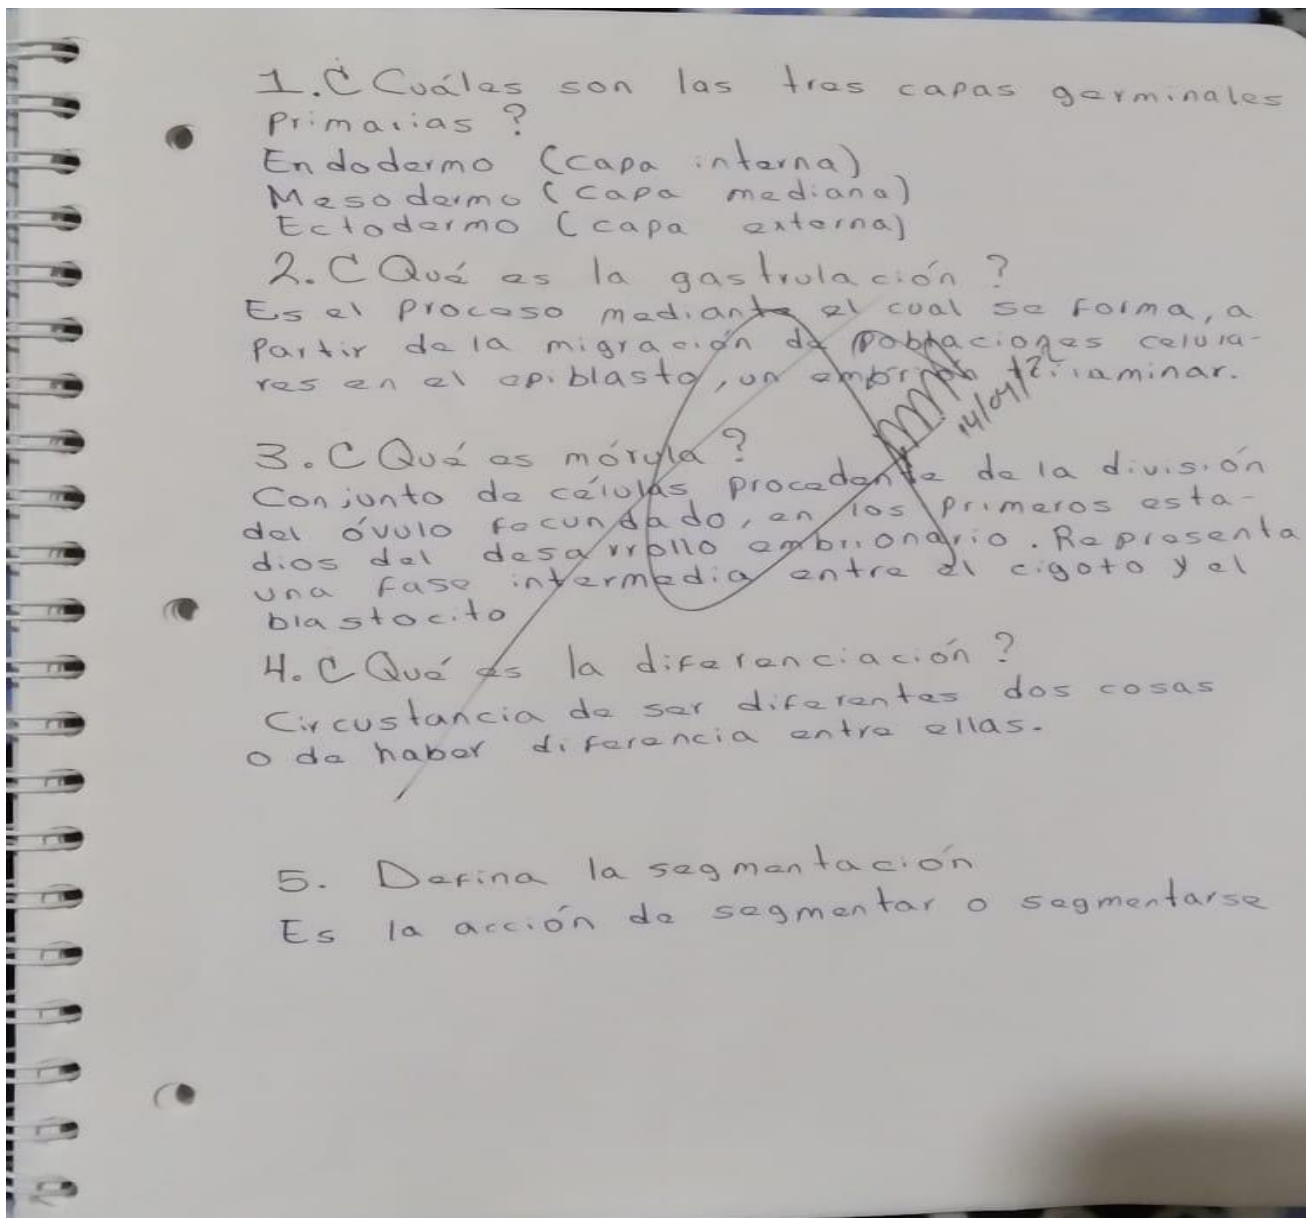 1. ¿Cuáles son las tres capas germinales
Primarias?
Endodermo (capa interna)
Mesodermo (capa mediana)
Ectodermo (capa externa)
2. ¿Qué es la gastrulación?
Es el proceso mediante el cual se forma, a
Partir de la migración de poblaciones celula-
res en el epiblasto, un embrión trilaminar.
14/04/2
3. ¿Qué es mórula?
Conjunto de células procedente de la división
del óvulo fecundado, en los primeros esta-
dios del desarrollo embrionario. Representa
una fase intermedia entre el cigoto y el
blastocito
4. ¿Qué es la diferenciación?
Circustancia de ser diferentes dos cosas
o de haber diferencia entre ellas.
5. Defina la segmentación
Es la acción de segmentar o segmentarse